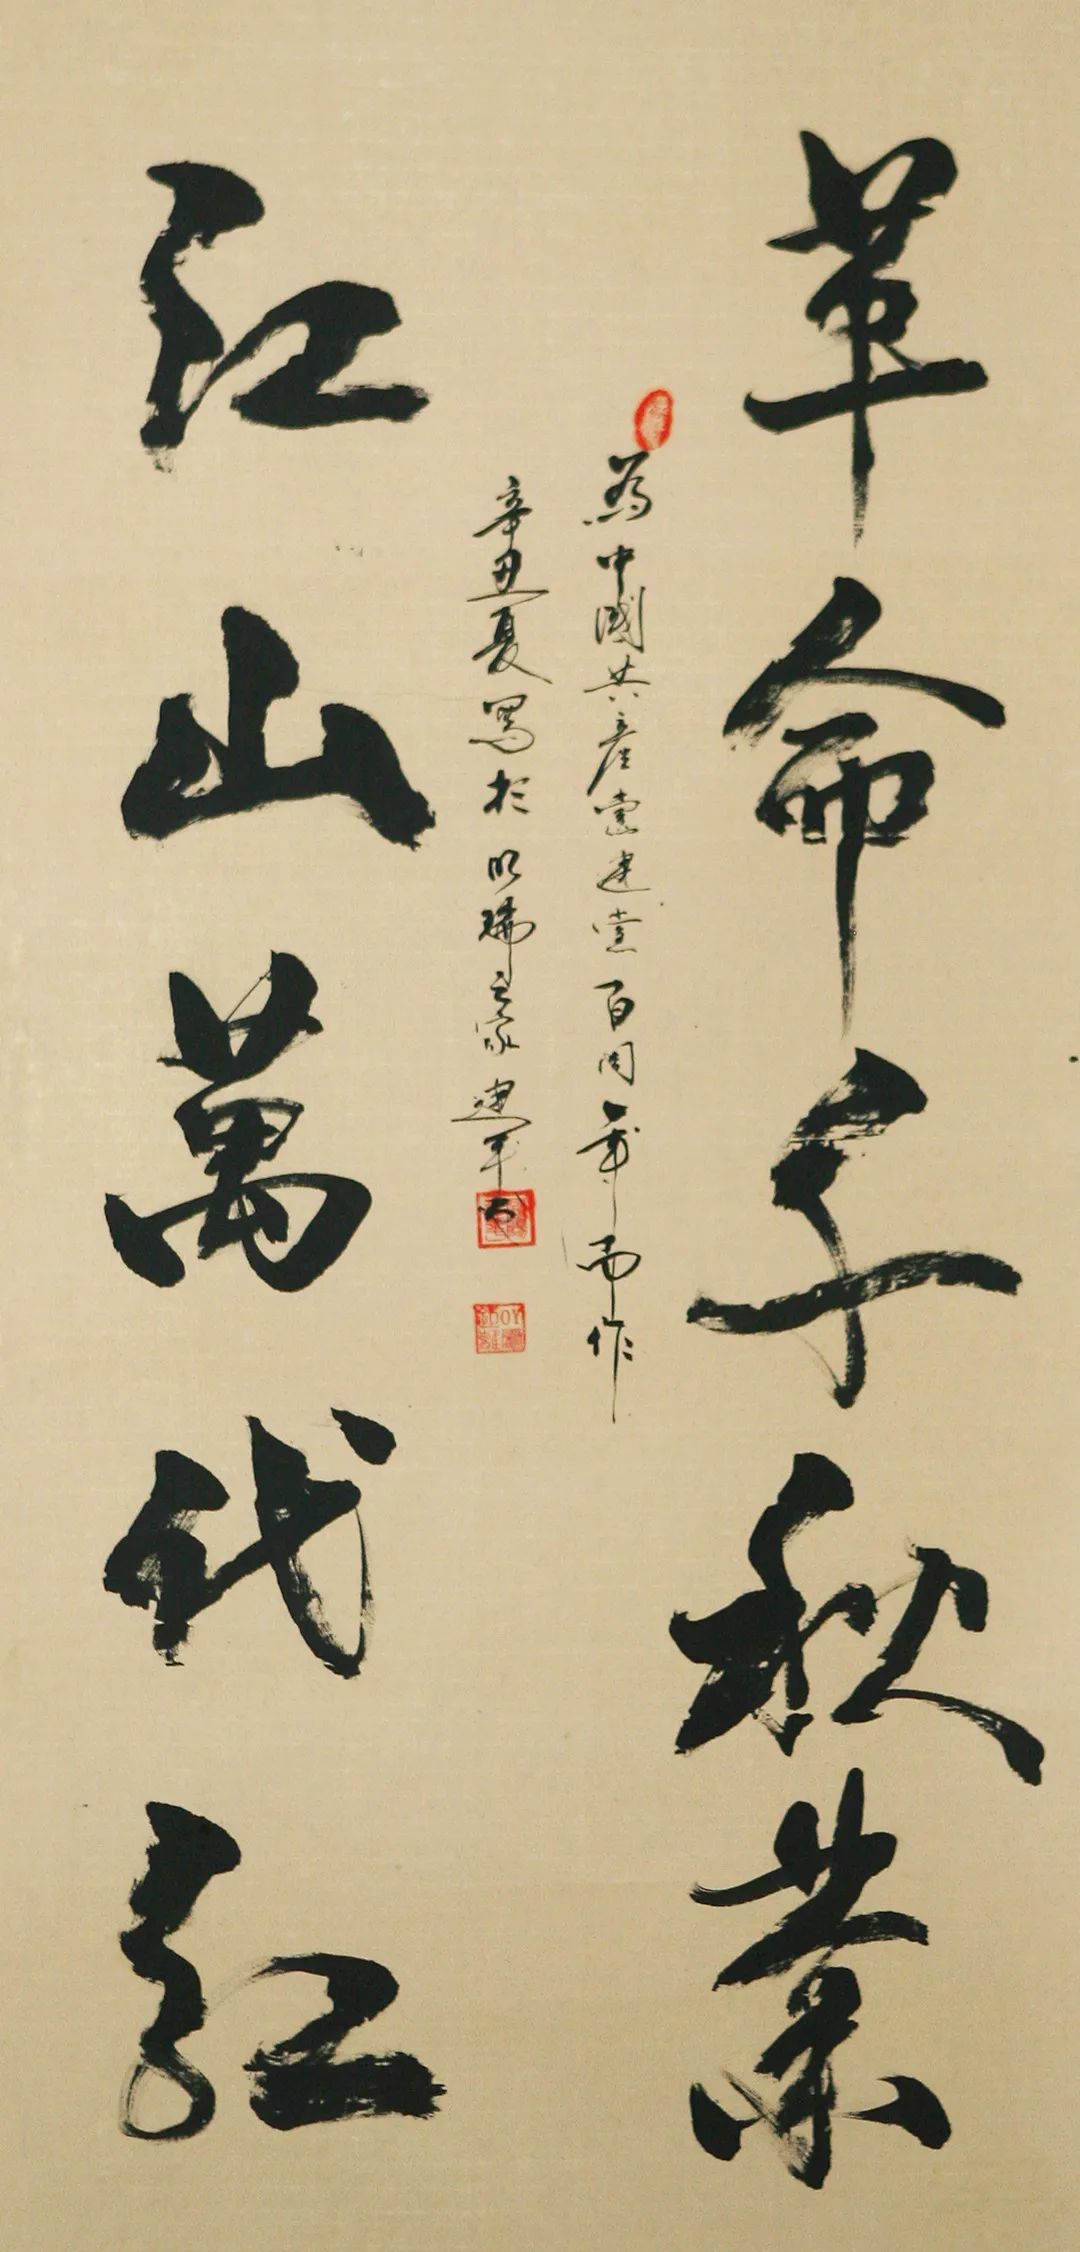 革命千秋業
為中國共產黨建黨百周年而作
辛丑夏寫於明瑞之家建軍
江山萬代紅